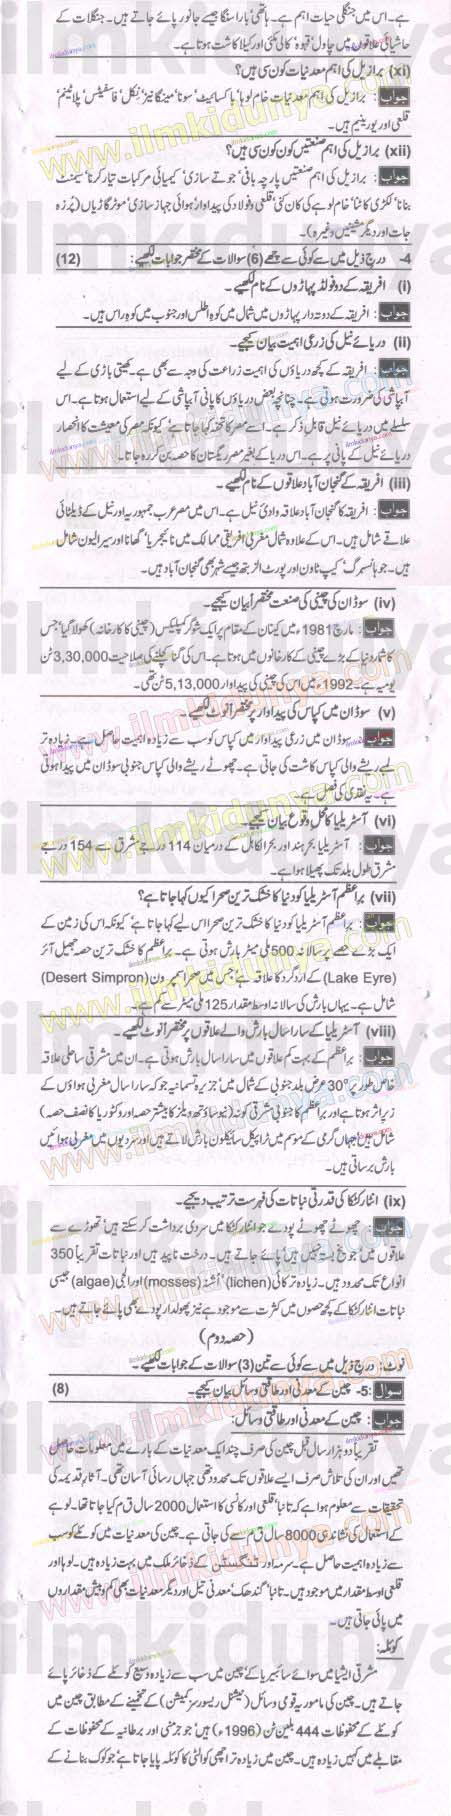 ہے۔ اس میں جنگلی حیات اہم ہے۔ ہاتھی، بارہ سنگا جیسے جانور پائے جاتے ہیں۔ جنگلات کے
حاشیائی علاقوں میں چاول، قہوہ، مکئی اور کیلا کاشت ہوتا ہے۔
(xi) برازیل کی اہم معدنیات کون سی ہیں؟
جواب: برازیل کی اہم معدنیات خام لوہا، باکسائیٹ، سونا، مینگانیز، نکل، فاسفیٹس، پلاٹینم،
قلعی اور یورینیم ہیں۔
(xii) برازیل کی اہم صنعتیں کون کون سی ہیں؟
جواب: برازیل کی اہم صنعتیں پارچہ بافی، جوتے سازی، کیمیائی مرکبات تیار کرنا، سیمنٹ
بنانا، لکڑی کاٹنا، خام لوہے کی کان کنی، قلعی و فولاد کی پیداوار، ہوائی جہاز سازی، موٹر گاڑیاں (پرزہ
جات اور دیگر مشینیں وغیرہ)۔
4- درج ذیل میں سے کوئی سے چھے (6) سوالات کے مختصر جوابات لکھیے: (12)
(i) افریقہ کے دو فولڈ پہاڑوں کے نام لکھیے۔
جواب: افریقہ کے دو تہ دار پہاڑوں میں شمال میں کوہ اطلس اور جنوب میں کوہ راس ہیں۔
(ii) دریائے نیل کی زرعی اہمیت بیان کیجیے۔
جواب: افریقہ کے کچھ دریاؤں کی اہمیت زراعت کی وجہ سے بھی ہے۔ کھیتی باڑی کے لیے
آبپاشی کی ضرورت ہوتی ہے۔ چنانچہ بعض دریاؤں کا پانی آبپاشی کے لیے استعمال ہوتا ہے۔ اس
سلسلے میں دریائے نیل قابل ذکر ہے۔ اسے مصر کا تحفہ کہا جاتا ہے، کیونکہ مصر کی معیشت کا انحصار
دریائے نیل کے پانی پر ہے۔ اس دریا کے بغیر مصر ریگستان کا حصہ بن کر رہ جاتا۔
(iii) افریقہ کے گنجان آباد علاقوں کے نام لکھیے۔
جواب: افریقہ کا گنجان آباد علاقہ وادیٔ نیل ہے۔ اس میں مصر عرب جمہوریہ اور نیل کے ڈیلٹائی
علاقے شامل ہیں۔ اس کے علاوہ شمال مغربی افریقی ممالک میں نائیجیریا، گھانا اور سیرالیون شامل
ہیں۔ جوہانسبرگ، کیپ ٹاؤن اور پورٹ الزبتھ جیسے شہر بھی گنجان آباد ہیں۔
(iv) سوڈان کی چینی کی صنعت مختصراً بیان کیجیے۔
جواب: مارچ 1981ء میں کینان کے مقام پر ایک شوگر کمپلیکس (چینی کا کارخانہ) کھولا گیا، جس
کا شمار دنیا کے بڑے چینی کے کارخانوں میں ہوتا ہے۔ اس کی گنا کچلنے کی صلاحیت 3,30,000 ٹن
یومیہ ہے۔ 1992ء میں اس کی چینی کی پیداوار 5,13,000 ٹن تھی۔
(v) سوڈان میں کپاس کی پیداوار پر مختصر نوٹ لکھیے۔
جواب: سوڈان میں زرعی پیداوار میں کپاس کو سب سے زیادہ اہمیت حاصل ہے۔ زیادہ تر
لمبے ریشے والی کپاس کاشت کی جاتی ہے۔ چھوٹے ریشے والی کپاس جنوبی سوڈان میں پیدا ہوتی
ہے۔ یہ نقدی کی فصل ہے۔
(vi) آسٹریلیا کا محل وقوع بیان کیجیے۔
جواب: آسٹریلیا بحر ہند اور بحر الکاہل کے درمیان 114 درجے مشرق سے 154 درجے
مشرق طول بلد تک پھیلا ہوا ہے۔
(vii) براعظم آسٹریلیا کو دنیا کا خشک ترین صحرا کیوں کہا جاتا ہے؟
جواب: براعظم آسٹریلیا کو دنیا کا خشک ترین صحرا اس لیے کہا جاتا ہے، کیونکہ اس کی زمین کے
ایک بڑے حصے پر سالانہ 500 ملی میٹر بارش ہوتی ہے۔ براعظم کا خشک ترین حصہ جھیل آئر
(Lake Eyre) کے اردگرد کا علاقہ ہے، جس میں صحرا سمپرون (Desert Simpron)
شامل ہے۔ یہاں بارش کی سالانہ اوسط مقدار 125 ملی میٹر سے کم ہے۔
(viii) آسٹریلیا کے سارا سال بارش والے علاقوں پر مختصر نوٹ لکھیے۔
جواب: براعظم کے بہت کم علاقوں میں سارا سال بارش ہوتی ہے۔ ان میں مشرقی ساحلی علاقہ
خاص طور پر 30° عرض بلد جنوبی کے شمال میں، جزیرہ تسمانیہ جو کہ سارا سال مغربی ہواؤں کے
زیر اثر ہوتا ہے اور براعظم کا جنوبی مشرقی کونہ (نیو ساؤتھ ویلز کا بیشتر حصہ اور وکٹوریا کا نصف حصہ)
شامل ہیں، جہاں گرمی کے موسم میں ٹراپیکل سائیکلون بارش لاتے ہیں اور سردیوں میں مغربی ہوائیں
بارش برساتی ہیں۔
(ix) انٹارکٹکا کی قدرتی نباتات کی فہرست ترتیب دیجیے۔
جواب: چھوٹے چھوٹے پودے جو انٹارکٹکا میں سردی برداشت کر سکتے ہیں، تھوڑے سے
علاقوں میں جو یخ بستہ نہیں ہیں، پائے جاتے ہیں۔ درخت ناپید ہیں اور نباتات تقریباً 350
انواع تک محدود ہیں۔ زیادہ تر کائی (lichen)، اُشنہ (mosses) اور الجی (algae) جیسی
نباتات انٹارکٹکا کے کچھ حصوں میں کثرت سے موجود ہے نیز پھولدار پودے بھی پائے جاتے ہیں۔
(حصہ دوم)
نوٹ: درج ذیل میں سے کوئی سے تین (3) سوالات کے جوابات لکھیے۔
سوال 5: چین کے معدنی اور طاقتی وسائل بیان کیجیے۔ (8)
جواب: چین کے معدنی اور طاقتی وسائل:
تقریباً دو ہزار سال قبل چین کی صرف چند ایک معدنیات کے بارے میں معلومات حاصل
تھیں اور ان کی تلاش صرف ایسے علاقوں تک محدود تھی جہاں رسائی آسان تھی۔ آثار قدیمہ کی
تحقیقات سے معلوم ہوا ہے کہ تانبا، قلعی اور کانسی کا استعمال 2000 سال ق م کیا جاتا تھا۔ لوہے
کے استعمال کی نشاندہی 8000 سال ق م سے کی جاتی ہے۔ چین کی معدنیات میں کوئلے کو سب
سے زیادہ اہمیت حاصل ہے۔ سرمہ اور ٹنگسٹن کے ذخائر ملک میں بہت زیادہ ہیں۔ لوہا اور
قلعی اوسط مقدار میں موجود ہیں۔ تانبا، گندھک، معدنی تیل اور دیگر معدنیات بھی کم و بیش مقداروں
میں پائی جاتی ہیں۔
کوئلہ:
مشرقی ایشیا میں سوائے سائبیریا کے، چین میں سب سے زیادہ وسیع کوئلے کے ذخائر پائے
جاتے ہیں۔ چین کی مامور یہ قومی وسائل (نیشنل ریسورسز کمیشن) کے تخمینے کے مطابق چین میں
کوئلے کے محفوظات 444 بلین ٹن (1996ء) ہیں، جو جرمنی اور برطانیہ کے محفوظات کے
مقابلے میں کہیں زیادہ ہیں۔ چین میں زیادہ تر اچھی کوالٹی کا کوئلہ پایا جاتا ہے، جو کوک بنانے کے